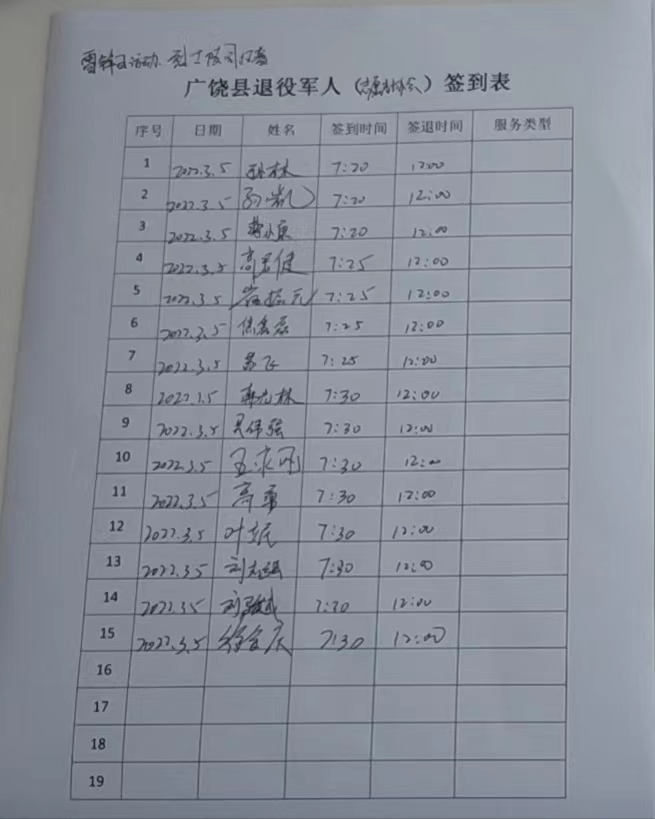 雷锋日活动.烈士陵
广饶县退役军人(志愿者协会)签到表
序号 日期 姓名 签到时间 签退时间 服务类型
1 2022.3.5 林 7:20 12:00
2 2022.3.5 7:20 12:00
3 2022.3.5 7:20 12:00
4 2022.3.5 高 健 7:25 12:00
5 2022.3.5 崔振元 7:25 12:00
6 2022.3.5 7:25 12:00
7 2022.3.5 飞 7:25 12:00
8 2022.3.5 林 7:30 12:00
9 2022.3.5 吴伟强 7:30 12:00
10 2022.3.5 王永刚 7:30 12:00
11 2022.3.5 高勇 7:30 12:00
12 2022.3.5 叶 7:30 12:00
13 2022.3.5 刘志强 7:30 12:00
14 2022.3.5 刘 12:00
15 2022.3.5 徐 7:30 12:00
16
17
18
19